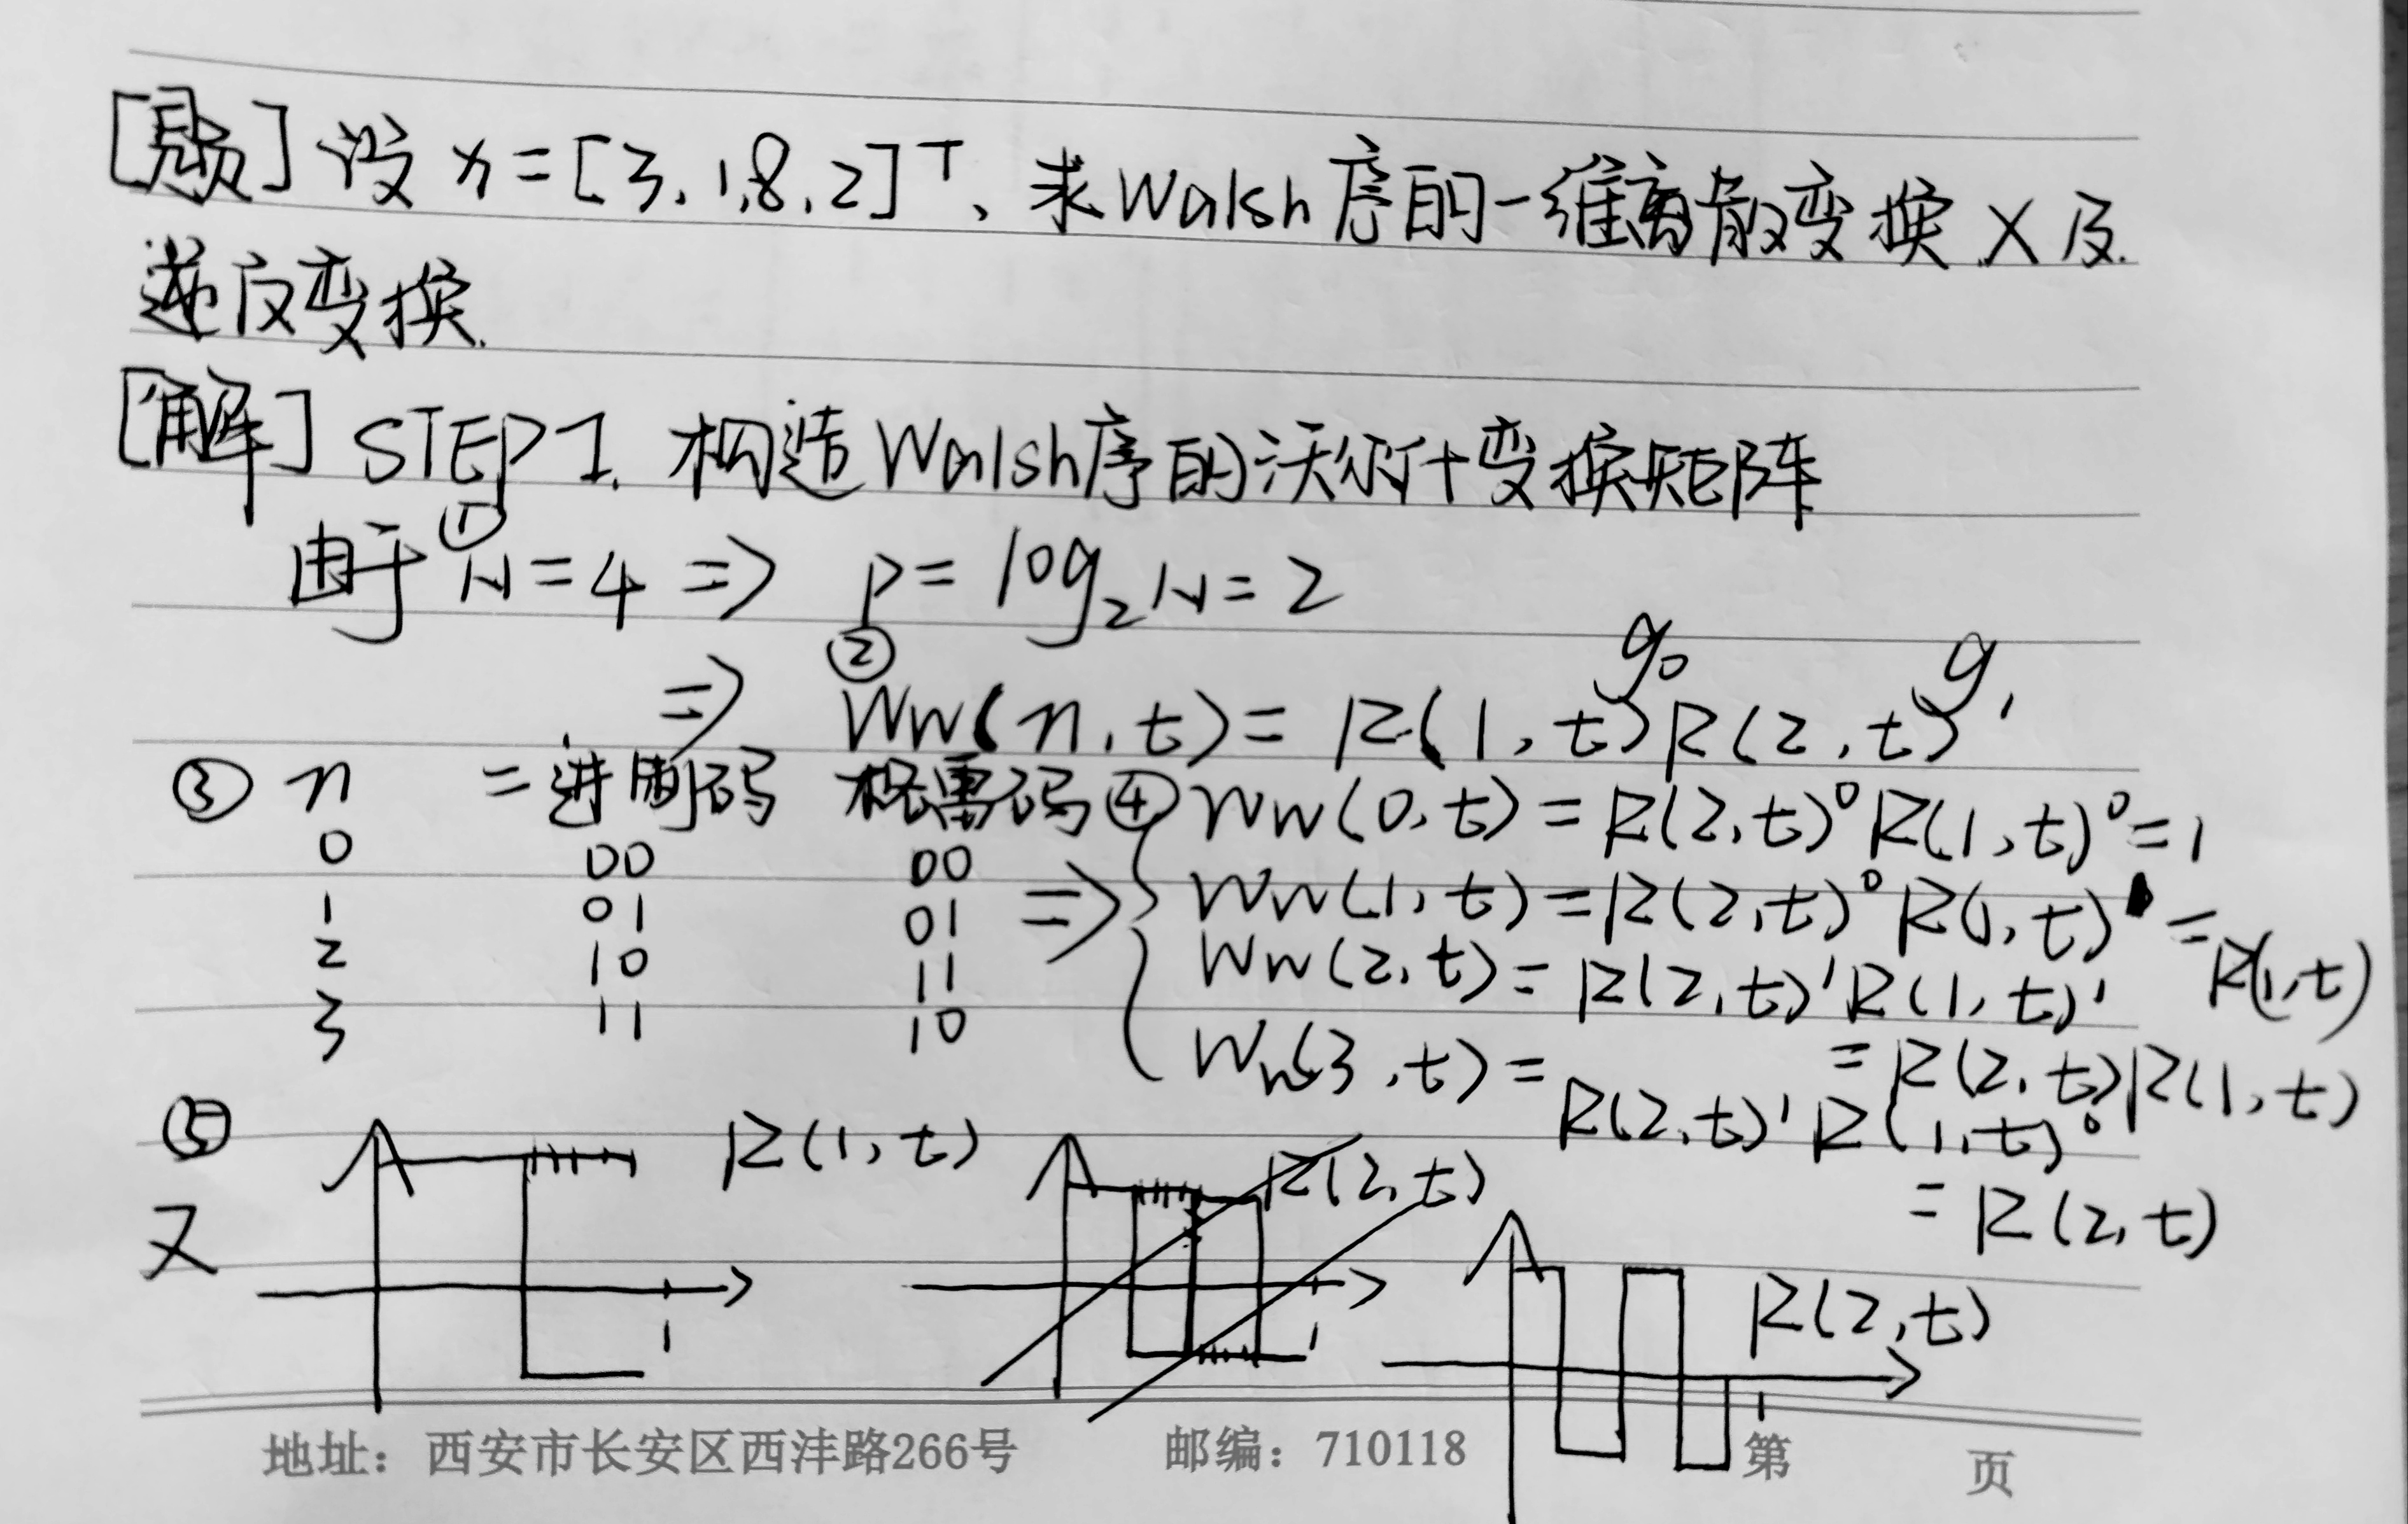 [题] 设 x = [3, 1, 8, 2]ᵀ, 求Walsh序的一维离散变换 X 及
逆反变换.
[解] STEP1. 构造Walsh序的沃尔什变换矩阵
由于 ① N = 4 => p = log₂N = 2
=> ② Ww(n, t) = R(1, t)^g₀ R(2, t)^g₁
③ n 二进制码 格雷码
0 00 00
1 01 01
2 10 11
3 11 10
=> ④ Ww(0, t) = R(2, t)⁰ R(1, t)⁰ = 1
Ww(1, t) = R(2, t)⁰ R(1, t)¹ = R(1, t)
Ww(2, t) = R(2, t)¹ R(1, t)¹
= R(2, t) R(1, t)
Ww(3, t) = R(2, t)¹ R(1, t)⁰
= R(2, t)
⑤ 又
R(1, t)
1
R(2, t)
1
R(2, t)
1
地址：西安市长安区西沣路266号 邮编：710118 第 页